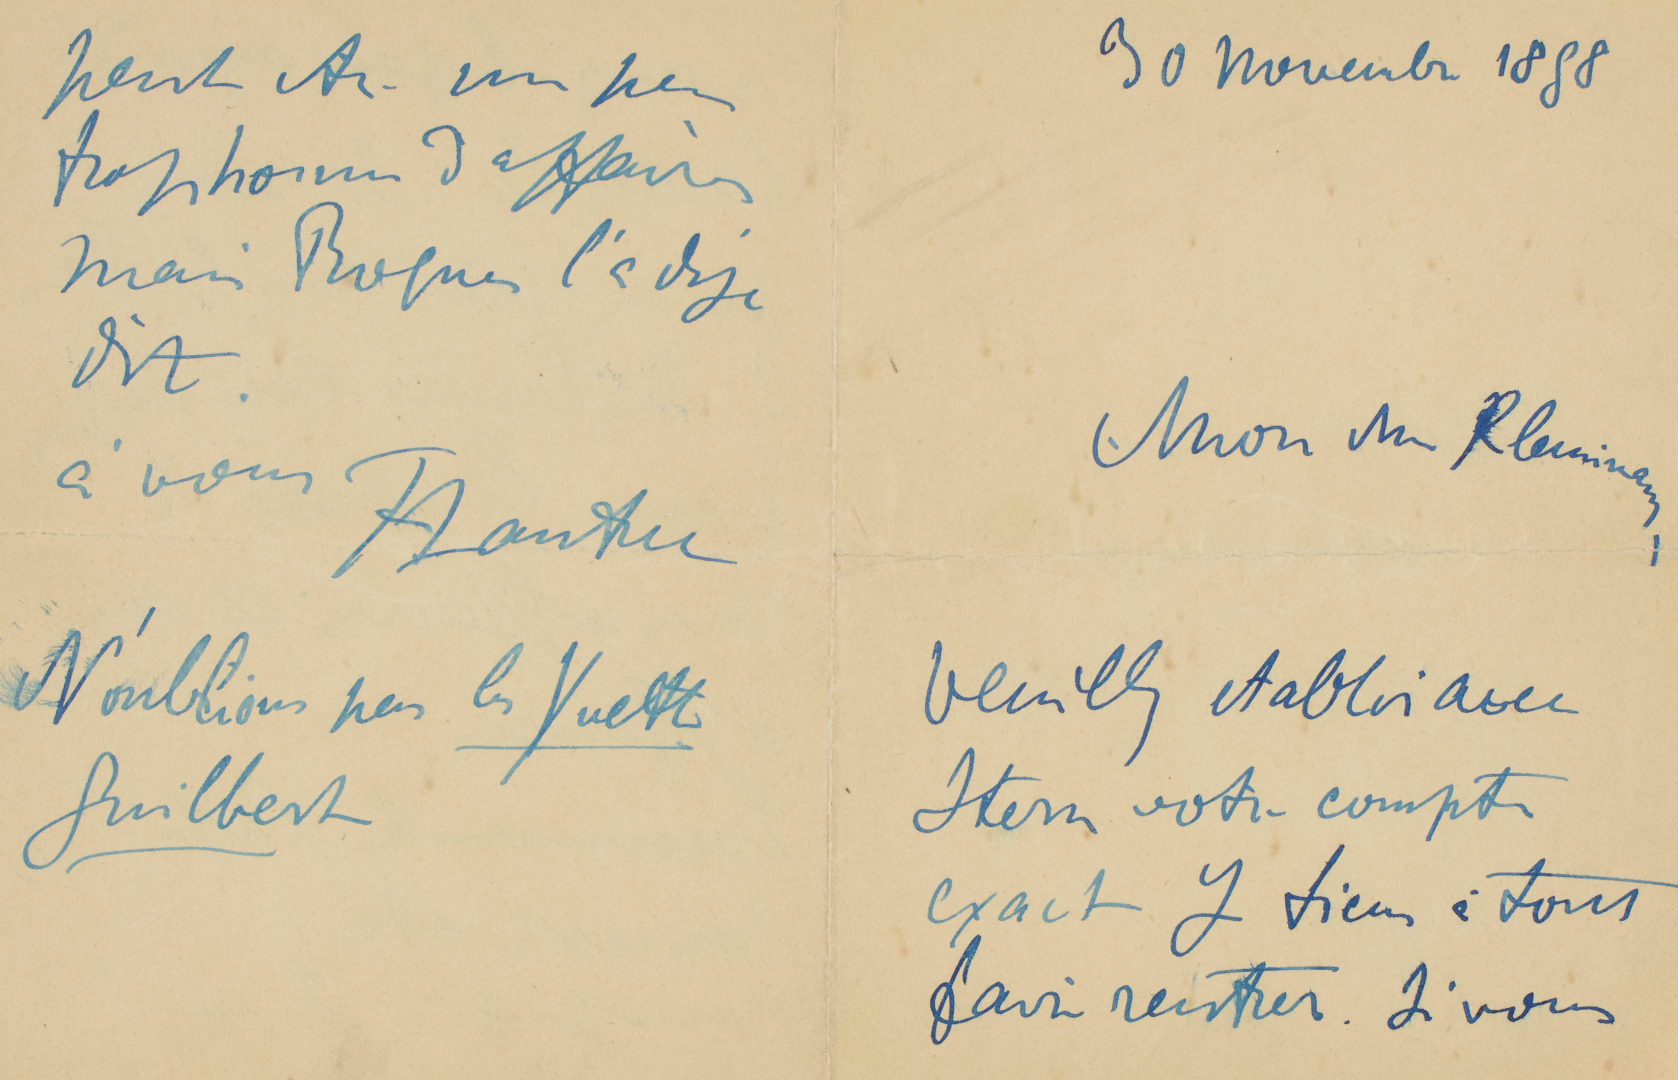 30 Novembre 1898
Mon cher Kleinmann,
Veuillez etablir avec
Stern votre compte
exact Je tiens à tout
faire rentrer. Si vous
peut etre un peu
trop homme d'affaires
mais Roques l'a deja
dit.
à vous
HTLautrec
N'oublions pas les Yvette
Guilbert